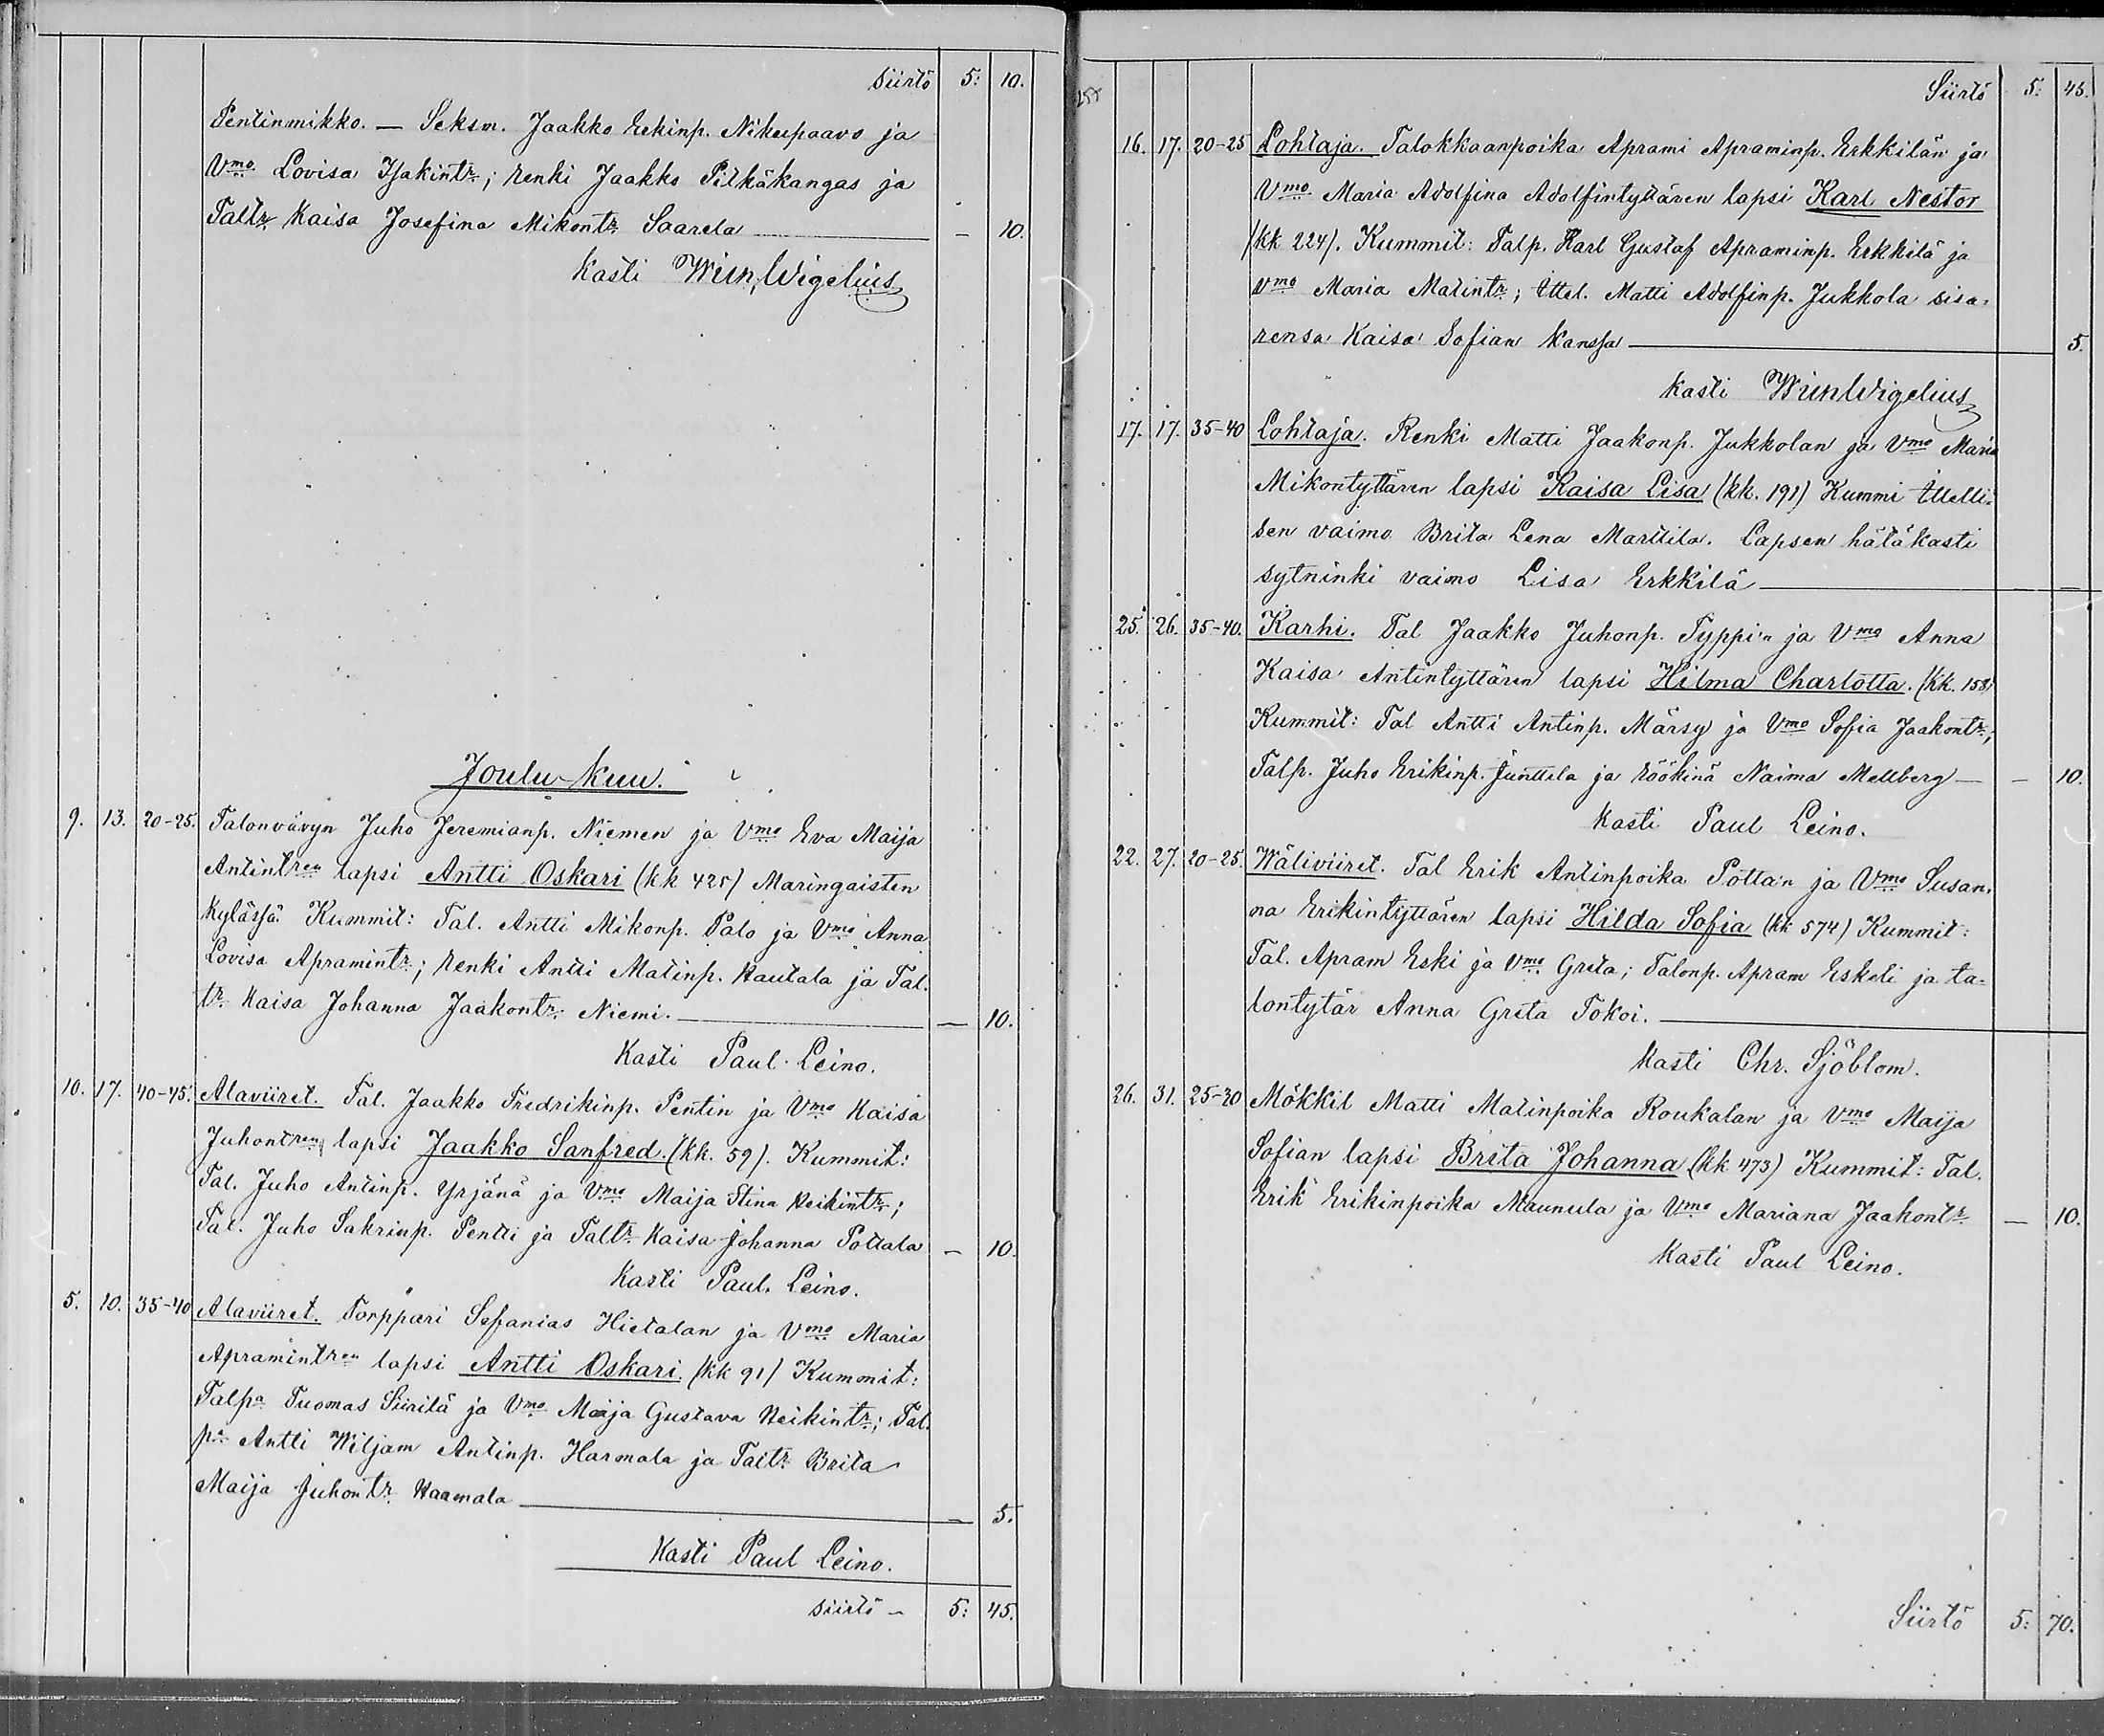 Siirtö 5: 10.
Pentinmikko. — Seksm. Jaakko Erkinp. Nikupaavo ja
Vmo Lovisa Isakintr; renki Jaakko Pitkäkangas ja
Taltr Kaisa Josefina Mikontr Saarela — 10.
Kasti Wim Wigelius
Joulu-kuu.
9. 13. 20-25. Talonvävyn Juho Jeremianp. Niemen ja Vmo Eva Maija
Antintren lapsi Antti Oskari (kk 425) Maringaisten
kylässä. Kummit: Tal. Antti Mikonp. Palo ja Vmo Anna
Lovisa Apramintr; renki Antti Matinp. Hautala ja Tal.
tr Kaisa Johanna Jaakontr. Niemi. — 10.
Kasti Paul Leino.
10. 17. 40-45. Alaviiret. Tal. Jaakko Fredrikinp. Pentin ja Vmo Kaisa
Juhontren lapsi Jaakko Sanfred. (kk. 59). Kummit:
Tal. Juho Antinp. Yrjänä ja Vmo Maija Stina Heikintr;
Tal. Juho Sakrinp. Pentti ja Taltr Kaisa Johanna Pottala — 10.
Kasti Paul. Leino.
5. 10. 35-40 Alaviiret. Torppari Sefanias Hietalan ja Vmo Maria
Apramintren lapsi Antti Oskari. (kk 91) Kummit:
Talpa Tuomas Siirilä ja Vmo Maija Gustava Heikintr; Tal.
pa Antti Wiljam Antinp. Harmala ja Taltr Brita
Maija Juhontr Haamala — 5.
Kasti Paul Leino.
Siirtö — 5: 45.
Siirtö 5: 45.
16. 17. 20-25 Lohtaja. Talokkaanpoika Aprami Apraminp. Erkkilän ja
Vmo Maria Adolfina Adolfintyttären lapsi Karl Nestor
(kk 224). Kummit: Talp. Karl Gustaf Apraminp. Erkkilä ja
Vmo Maria Matintr; Ittel. Matti Adolfinp. Jukkola sisa-
rensa Kaisa Sofian kanssa — 5.
Kasti Wim Wigelius
17. 17. 35-40 Lohtaja. Renki Matti Jaakonp. Jukkolan ja Vmo Maria
Mikontyttären lapsi Kaisa Lisa (kk. 191) Kummi Ittelli-
sen vaimo Brita Lena Marttila. Lapsen hätäkasti
sytninki vaimo Lisa Erkkilä —
25. 26. 35-40. Karhi. Tal Jaakko Juhonp. Typpi'n ja Vmo Anna
Kaisa Antintyttären lapsi Hilma Charlotta. (kk. 158)
Kummit: Tal Antti Antinp. Märsy ja Vmo Sofia Jaakontr;
Talp. Juho Erikinp. Junttila ja röökinä Naima Mellberg — — 10.
Kasti Paul Leino.
22. 27. 20-25. Wäliviiret. Tal Erik Antinpoika Potta'n ja Vmo Susan-
na Erikintyttären lapsi Hilda Sofia (kk 574) Kummit:
Tal. Apram Eski ja Vmo Greta; Talonp. Apram Eskeli ja ta-
lontytär Anna Greta Tokoi. —
Kasti Chr. Sjöblom.
26. 31. 25-30 Mökkil Matti Matinpoika Roukalan ja Vmo Maija
Sofian lapsi Brita Johanna (kk 473) Kummit: Tal.
Erik Erikinpoika Maunula ja Vmo Mariana Jaakontr — 10.
Kasti Paul Leino.
Siirtö 5: 70.